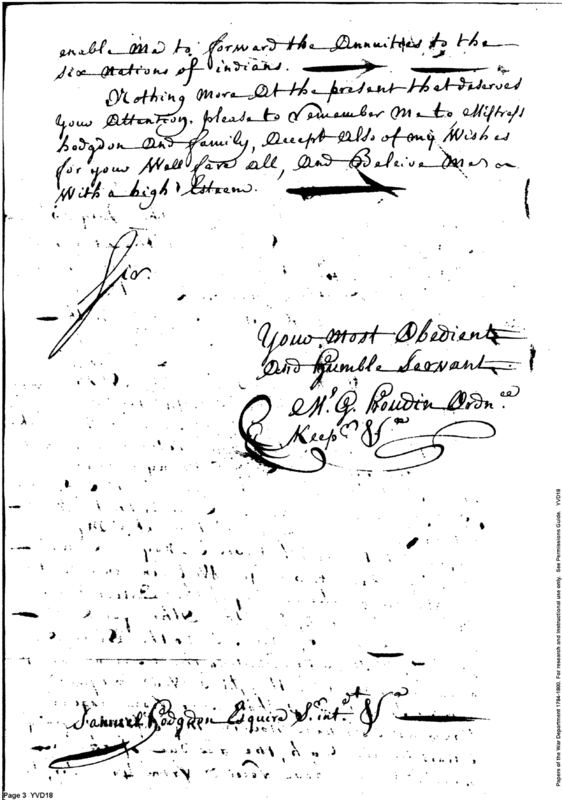 enable Me to forward the Annuities to the
six nations of indians.
Nothing More At the present that deserves
your Attention. please to remember Me to Mistress
hodgdon And family, Accept Also of my Wishes
for your Well fare all, And Beleive Me
With a high Esteem.
Sir.
Your Most Obedient
And humble Servant
M. G. houdin Ordn.ce
Keepr &ca
Samuel Hodgdon Esquire S. intdt &ca
Page 3 YVD18
Papers of the War Department 1784-1800. For research and instructional use only. See Permissions Guide. YVD18